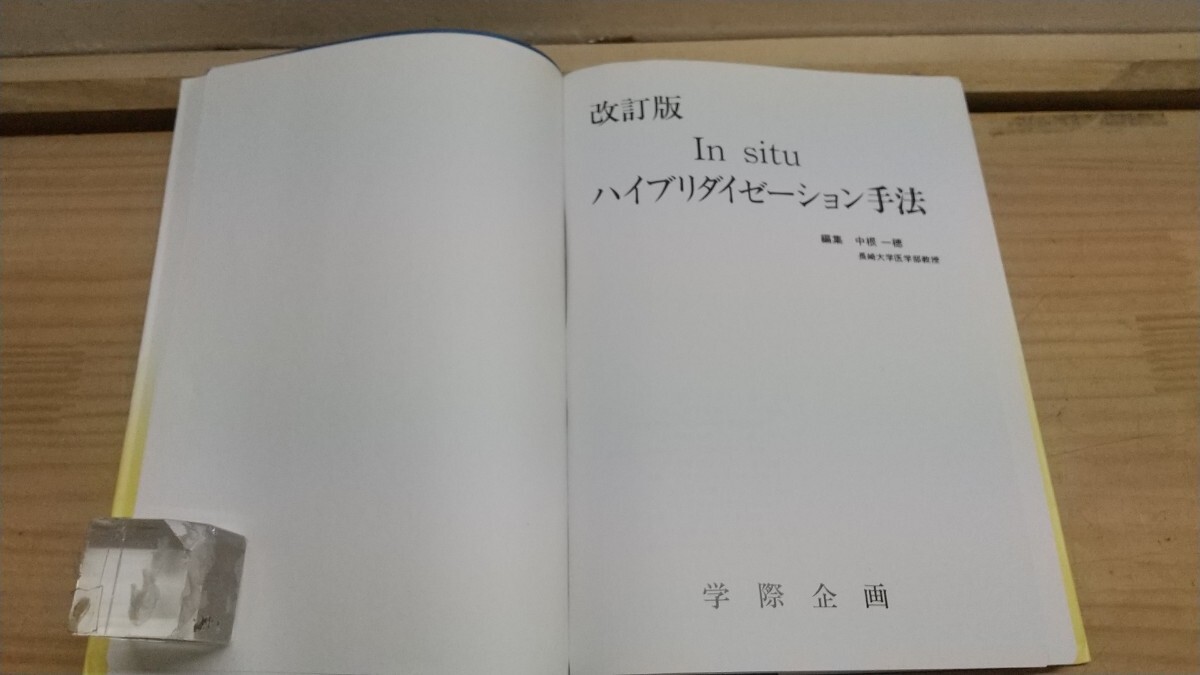 改訂版
In situ
ハイブリダイゼーション手法
編集 中根一穂
長崎大学医学部教授
学際企画